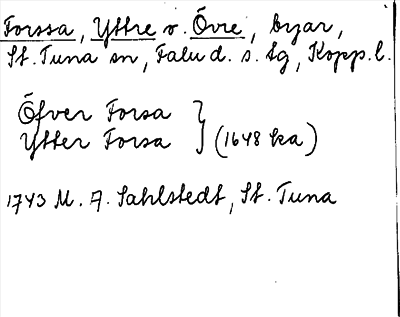 Forssa, Yttre o. Övre, byar,
St. Tuna sn, Falu d. s. tg, Kopp. l.
Öfver Forsa
Ytter Forsa } (1648 ka)
1743 M. A. Sahlstedt, St. Tuna